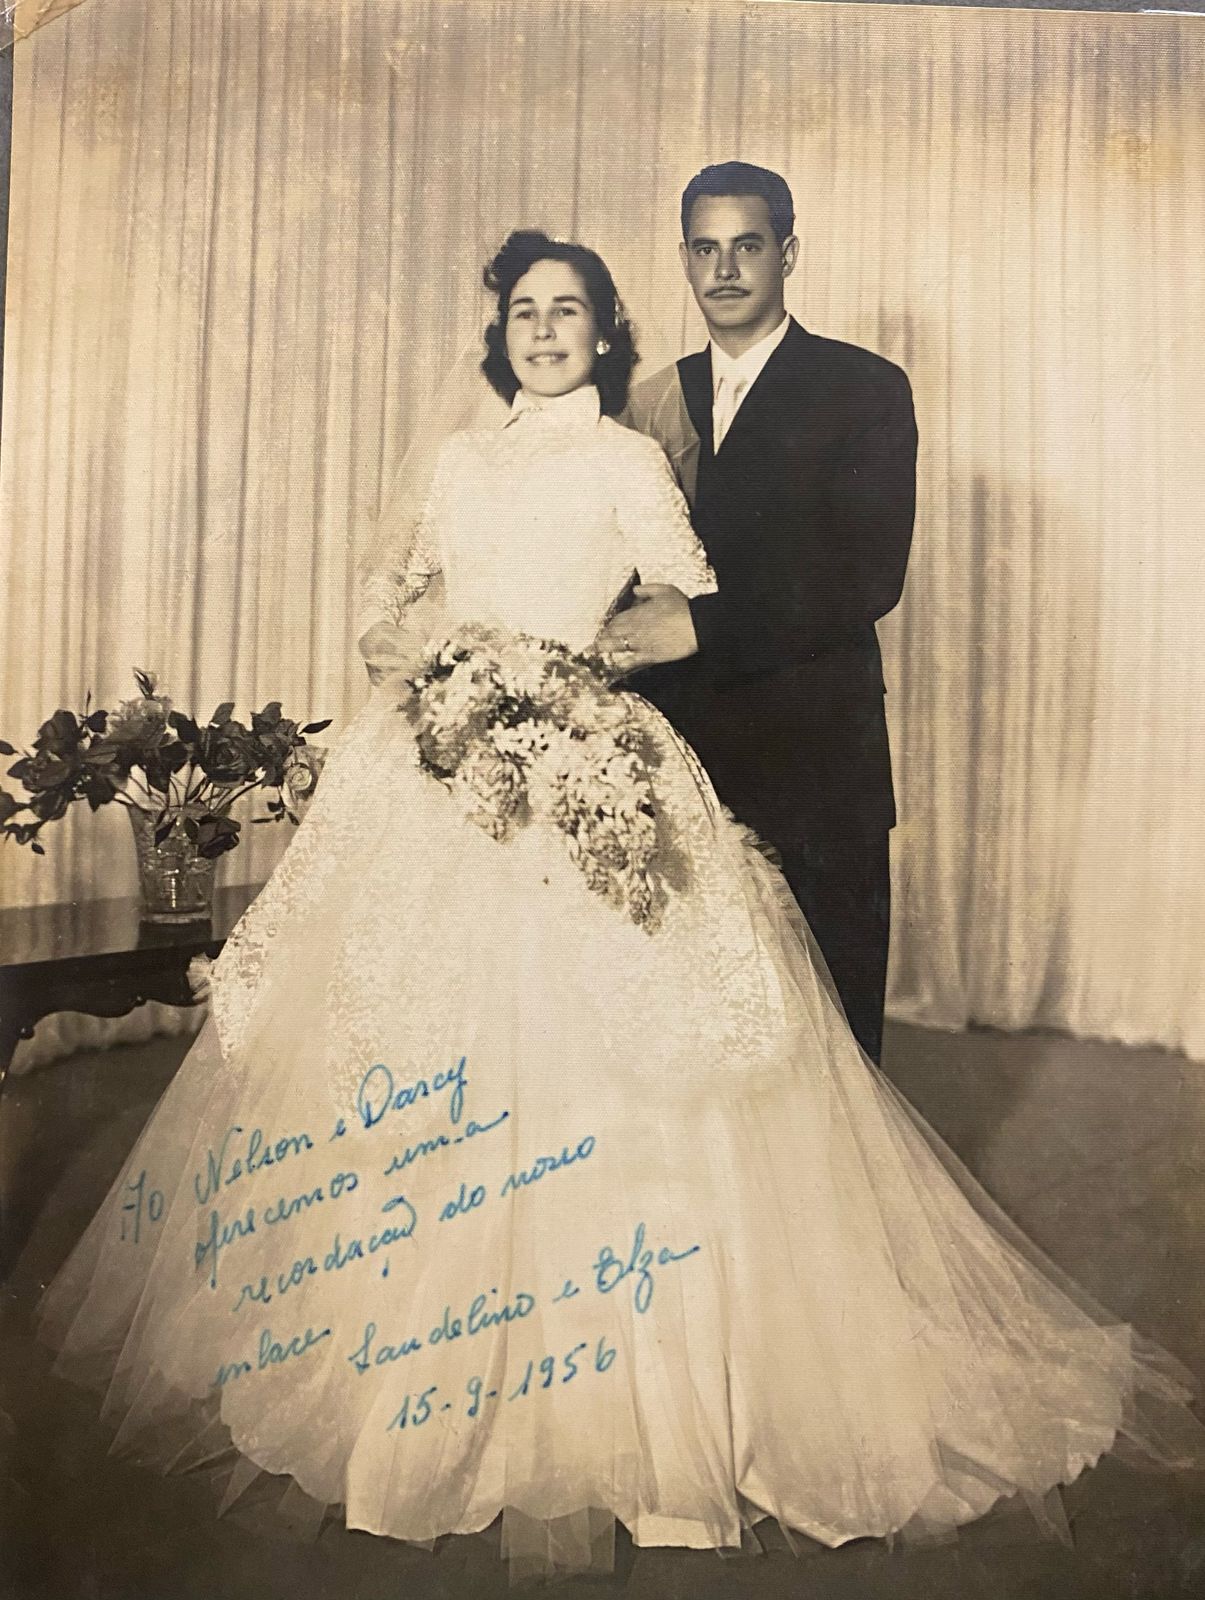 Ao Nelson e Darcy
oferecemos uma
recordação do nosso
enlace
Laudelino e Elza
15-9-1956